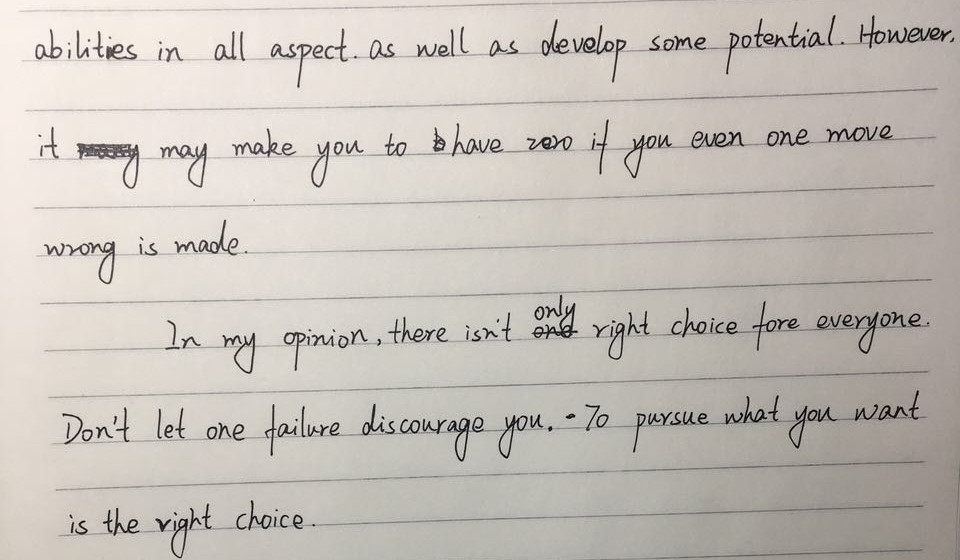 abilities in all aspect. as well as develop some potential. However,
it may make you to have zero if you even one move
wrong is made.
In my opinion, there isn't only right choice fore everyone.
Don't let one failure discourage you. - To pursue what you want
is the right choice.